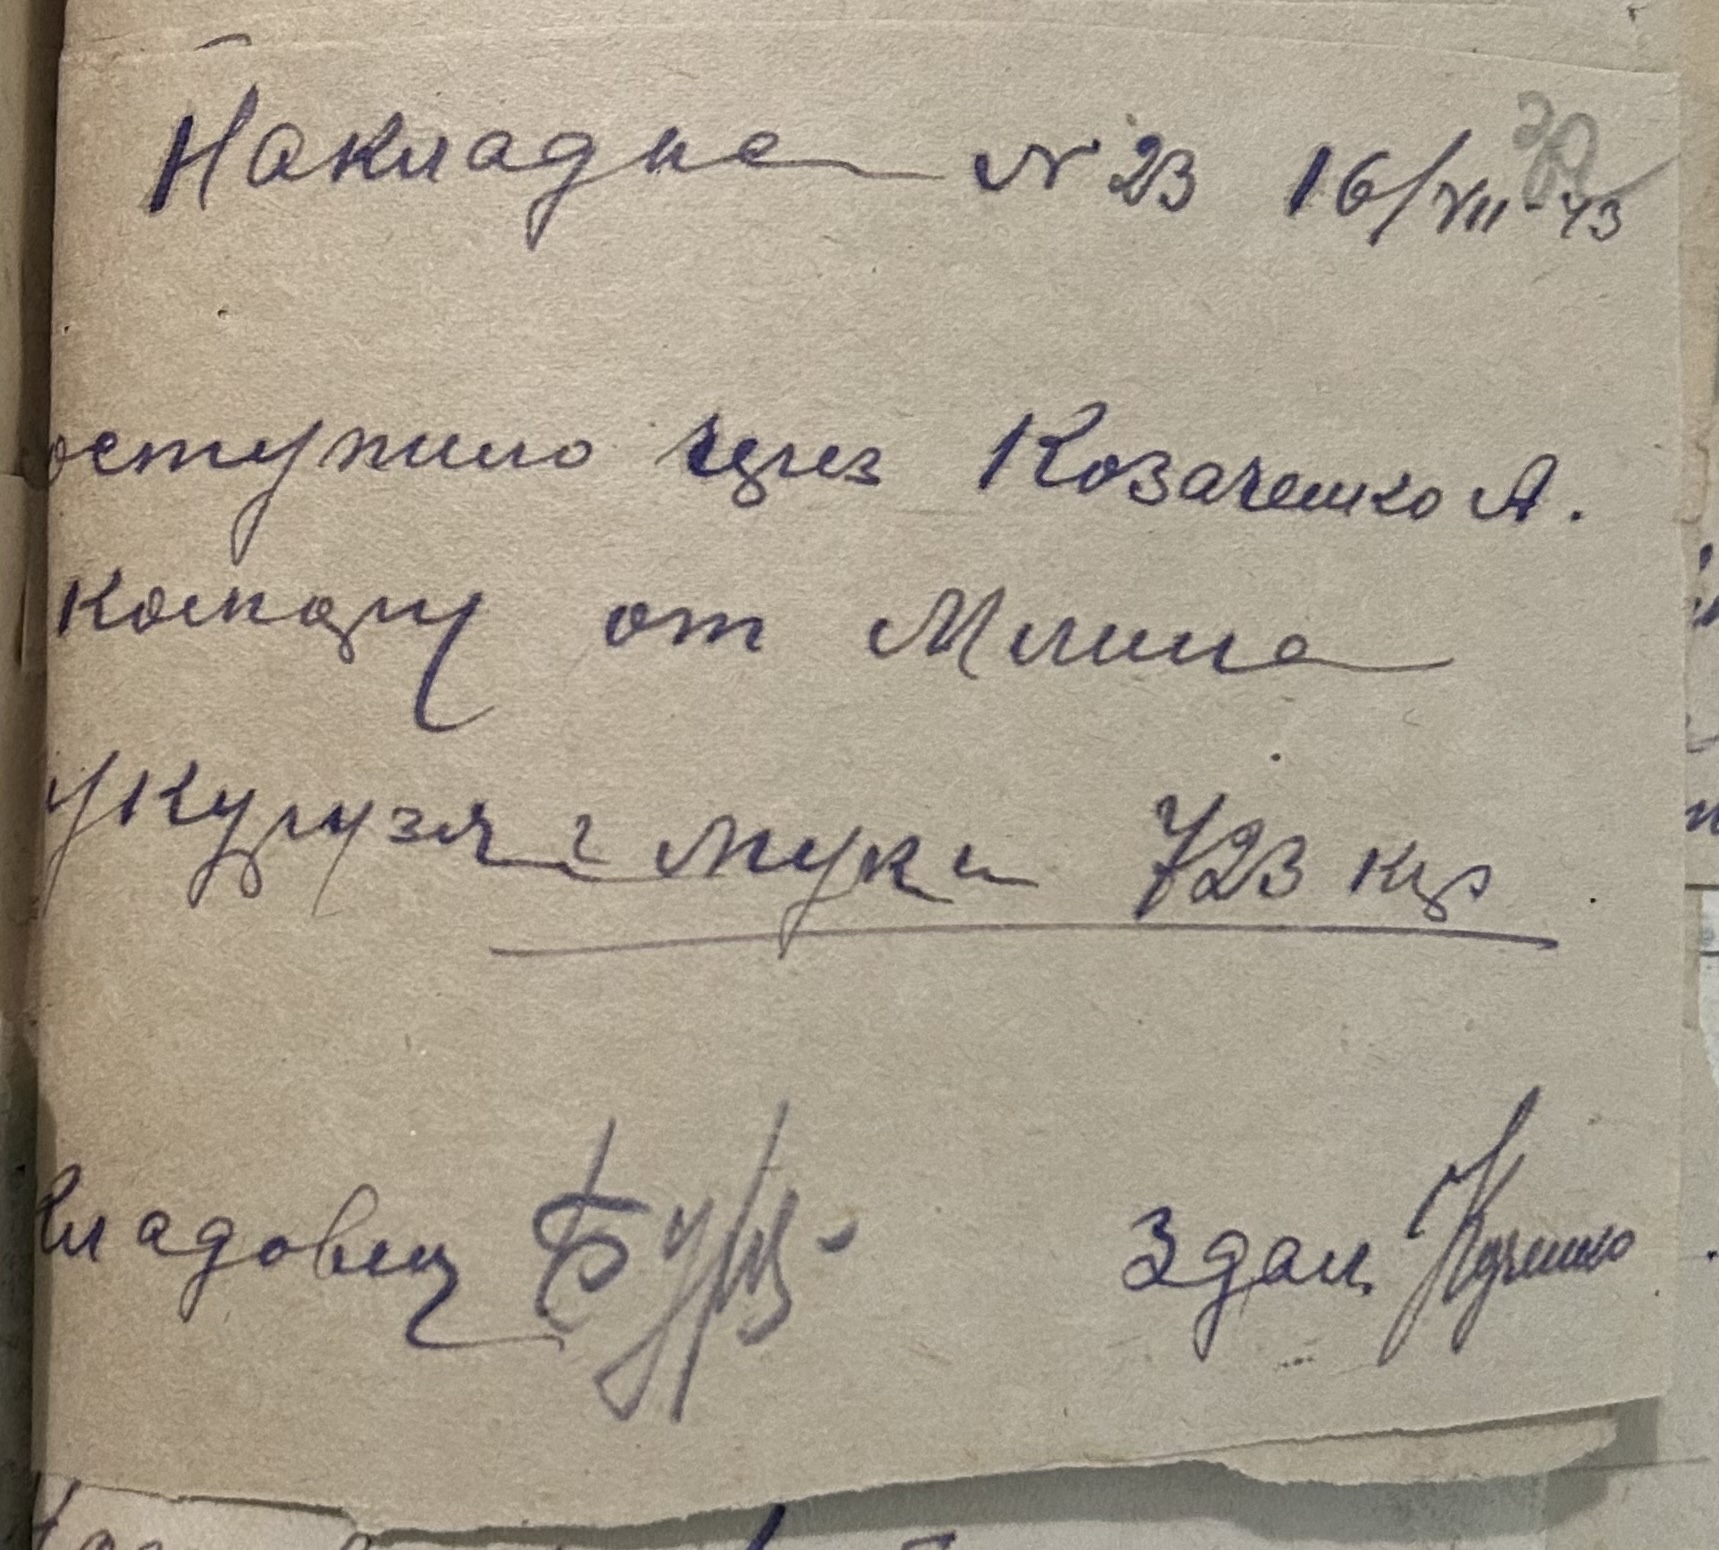 Накладна № 23 16/VII-43
30
оступило через Козаченко А.
комору от Млина
укурузяної муки 723 кгр
кладовщ Здал